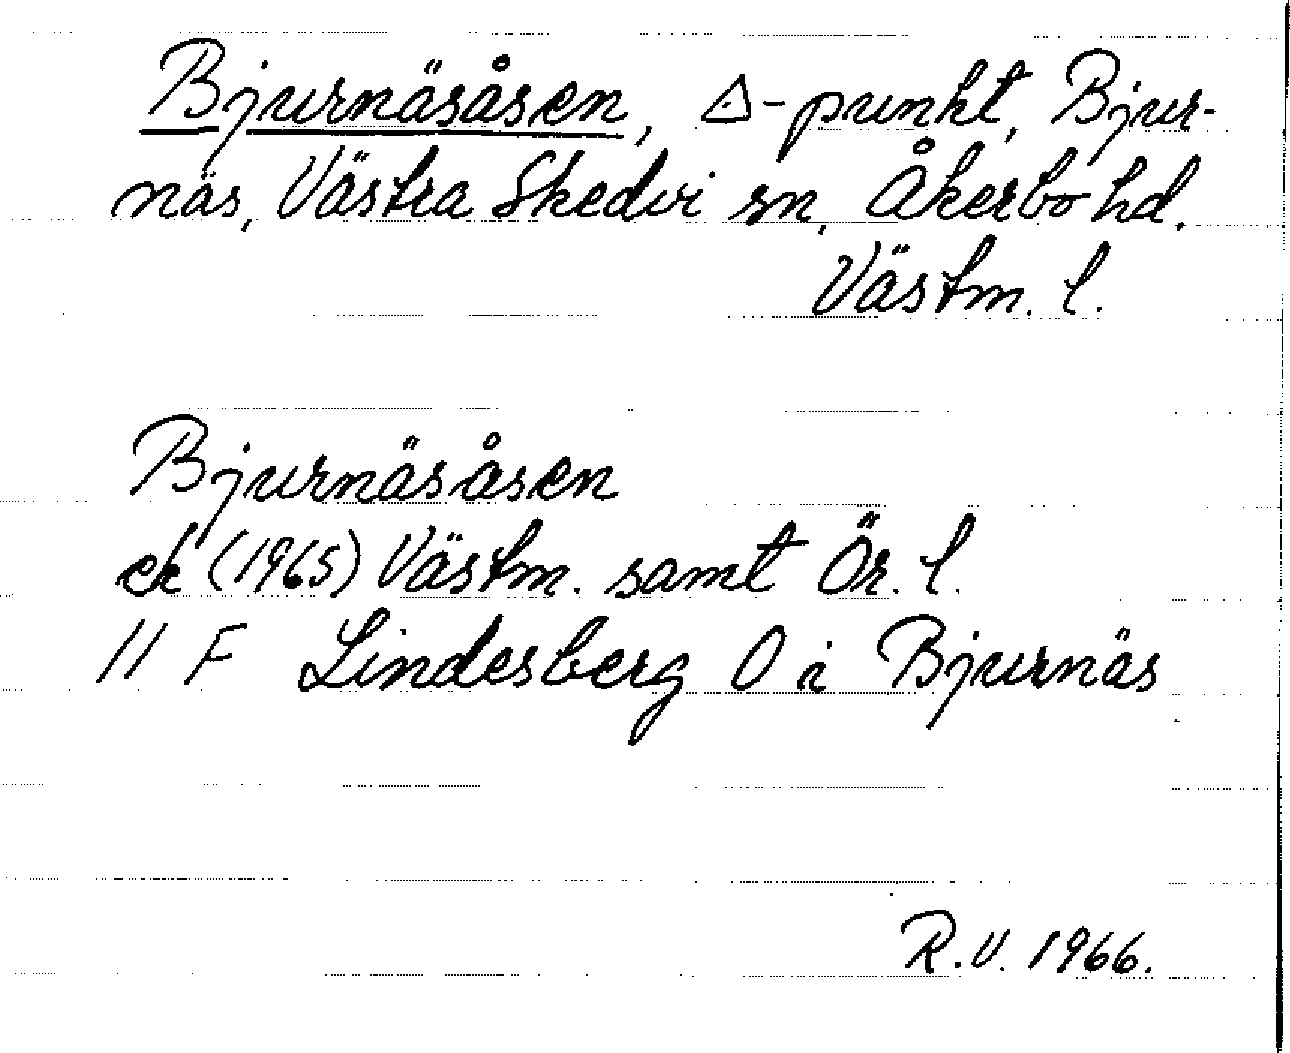 Bjurnäsåsen, △-punkt, Bjur-
näs, Västra Skedvi sn, Åkerbo hd.
Västm. l.
Bjurnäsåsen
ek (1965) Västm. samt Ör. l.
11 F Lindesberg O i Bjurnäs
R.V. 1966.